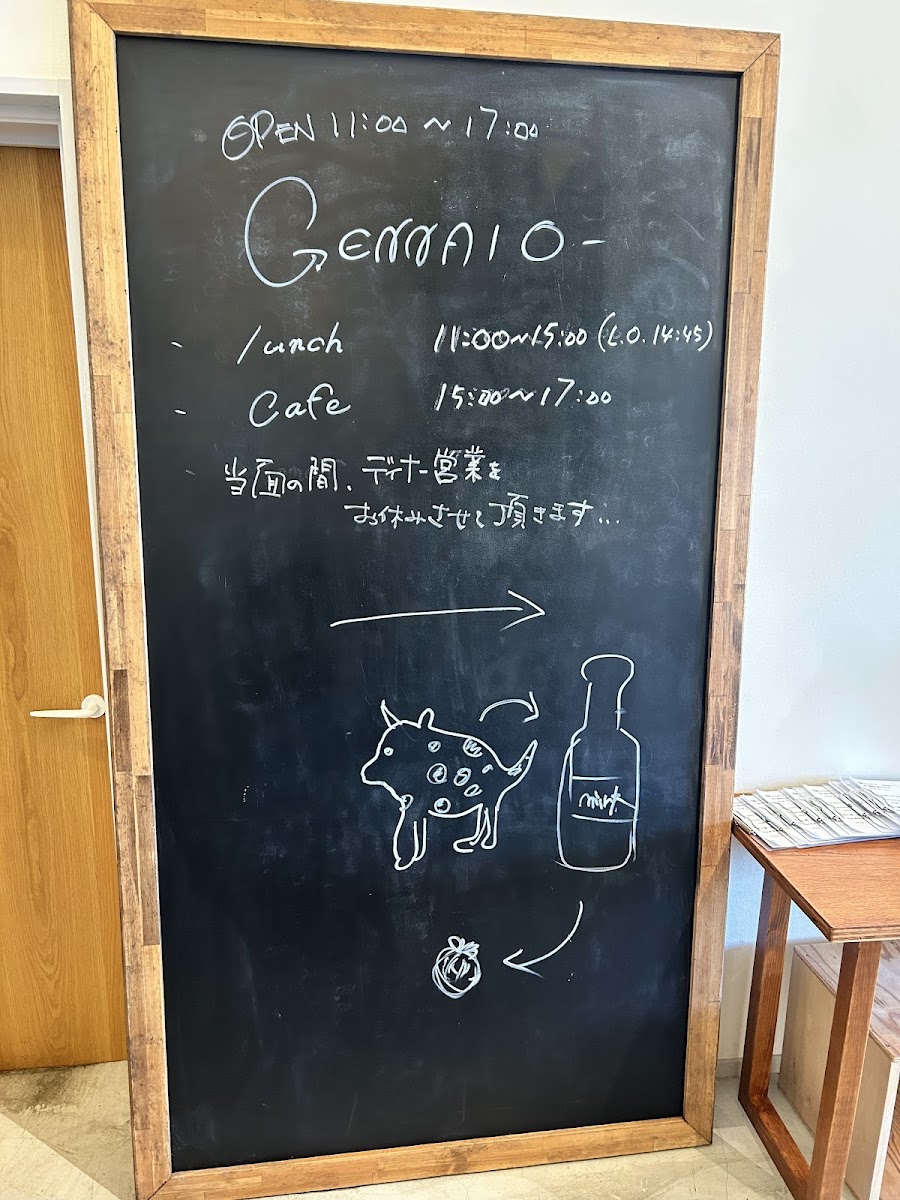 OPEN 11:00 ~ 17:00
GENNAIO-
- lunch 11:00~15:00 (L.O. 14:45)
- Cafe 15:00~17:00
- 当面の間、ディナー営業を
お休みさせて頂きます...
milk